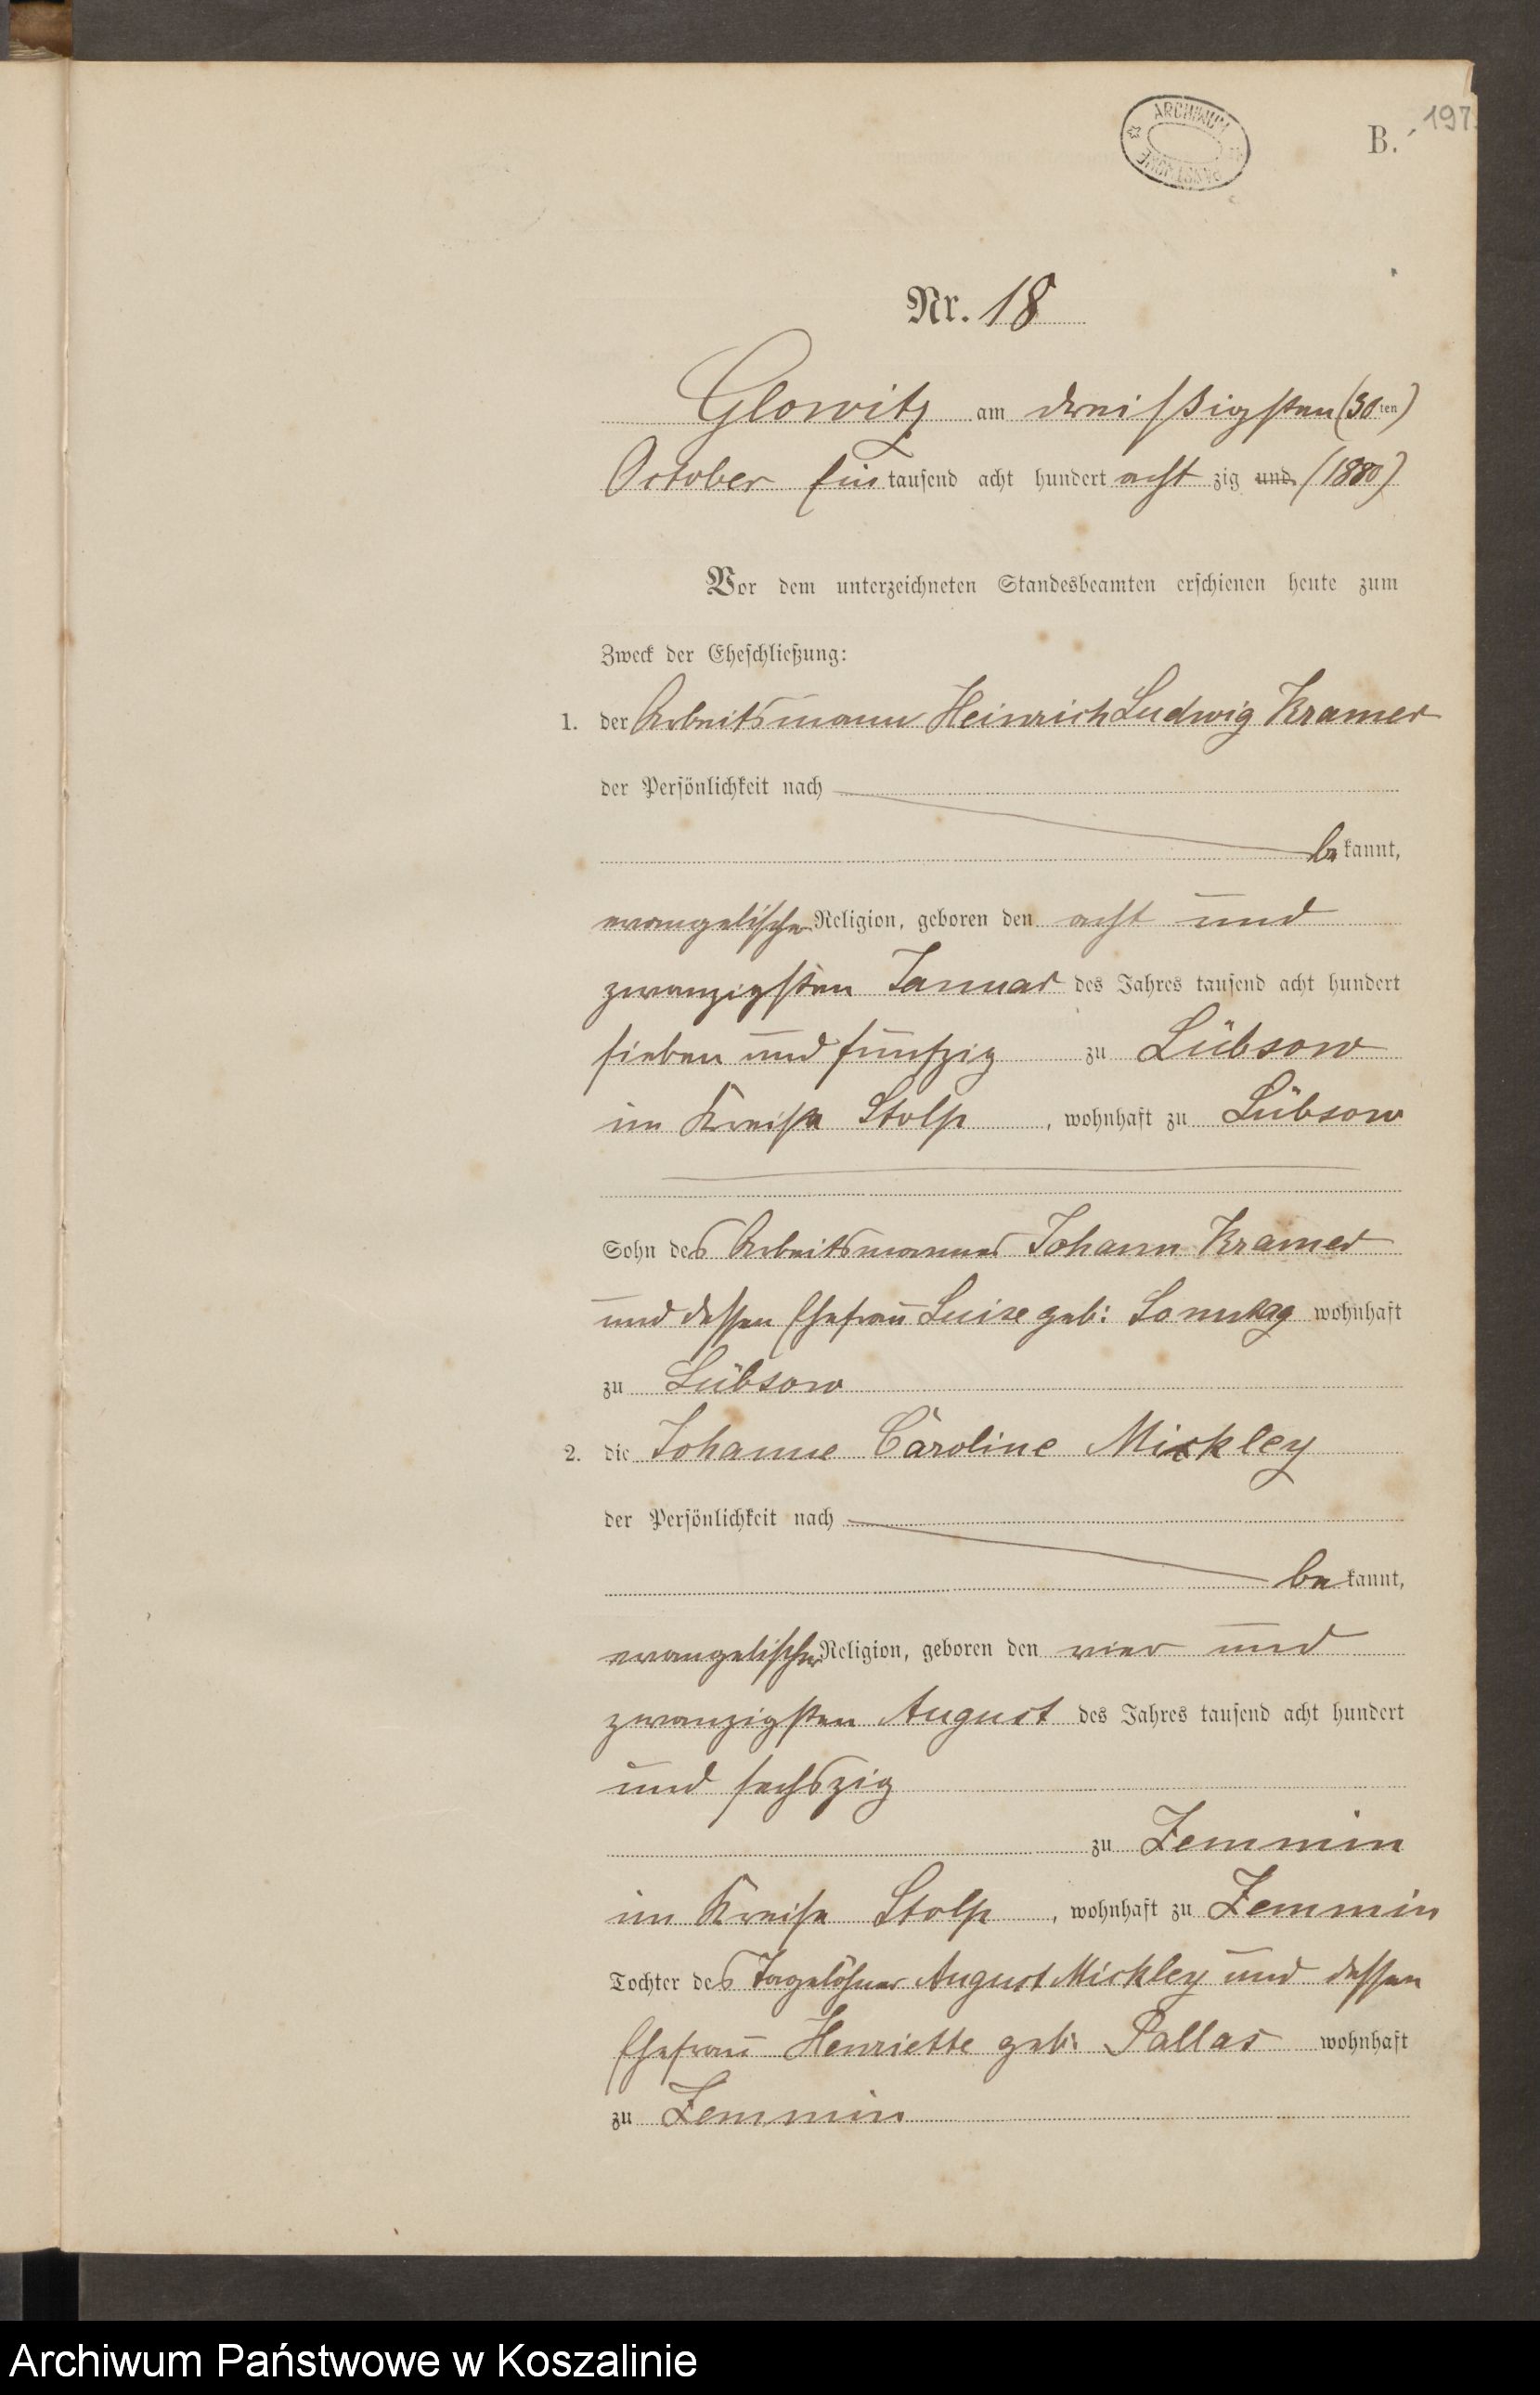 ARCHIWUM PAŃSTWOWE
197
B.
Nr. 18
Glowitz am dreißigsten (30ten)
October Ein tausend acht hundert acht zig und (1880)
Vor dem unterzeichneten Standesbeamten erschienen heute zum
Zweck der Eheschließung:
1. der Arbeitsmann Heinrich Ludwig Kramer
der Persönlichkeit nach
be kannt,
evangelischer Religion, geboren den acht und
zwanzigsten Januar des Jahres tausend acht hundert
sieben und fünfzig zu Lübsow
im Kreise Stolp, wohnhaft zu Lübsow
Sohn des Arbeitsmannes Johann Kramer
und dessen Ehefrau Luise geb: Sonntag wohnhaft
zu Lübsow
2. die Johanne Caroline Mickley
der Persönlichkeit nach
be kannt,
evangelischer Religion, geboren den vier und
zwanzigsten August des Jahres tausend acht hundert
und sechszig
zu Zemmin
im Kreise Stolp, wohnhaft zu Zemmin
Tochter des Tagelöhner August Mickley und dessen
Ehefrau Henriette geb: Pallas wohnhaft
zu Zemmin
Archiwum Państwowe w Koszalinie